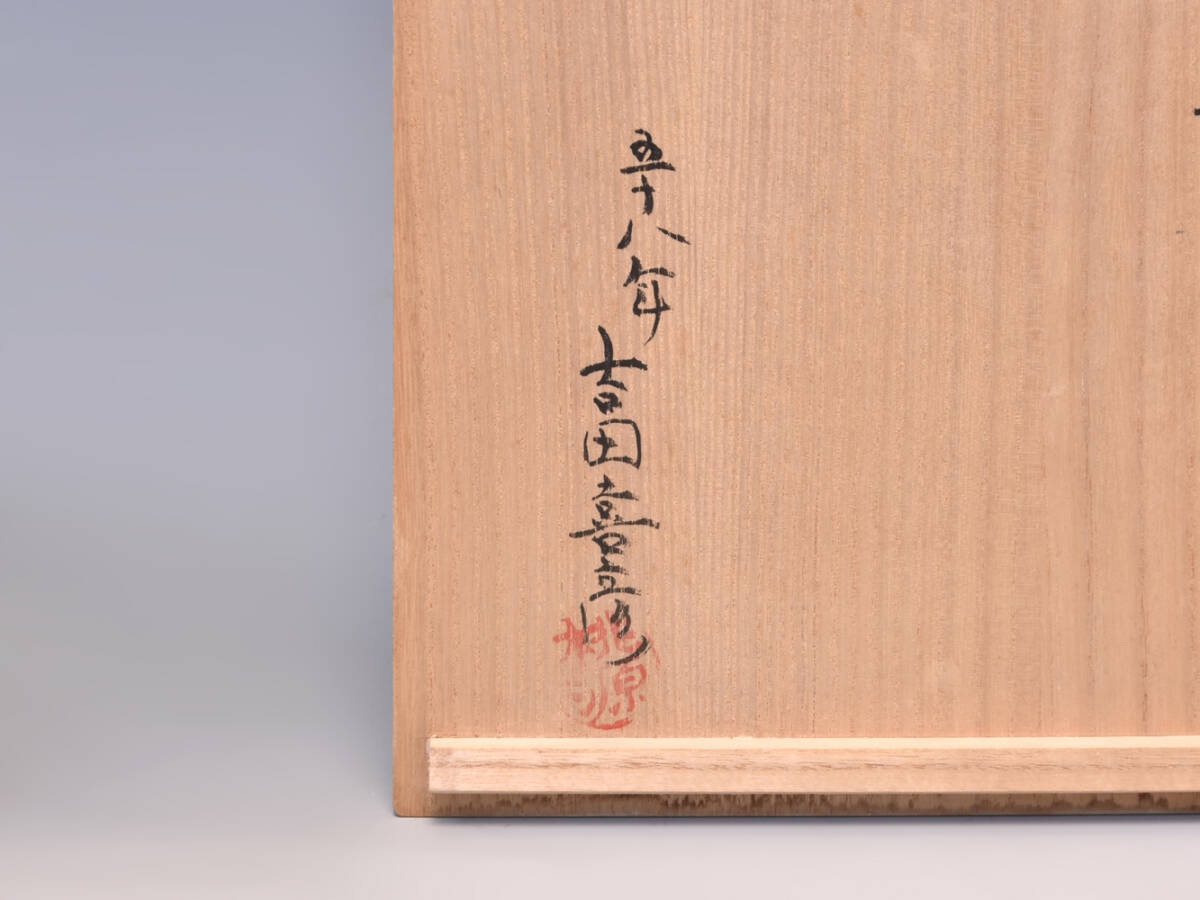 五十八年
吉田喜彦